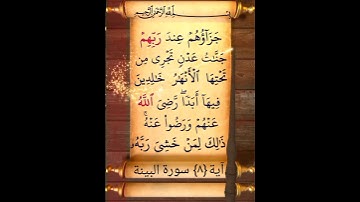 بسم الله الرحمن الرحيم
جَزَآؤُهُمۡ عِندَ رَبِّهِمۡ
جَنَّٰتُ عَدۡنٖ تَجۡرِي مِن
تَحۡتِهَا ٱلۡأَنۡهَٰرُ خَٰلِدِينَ
فِيهَآ أَبَدٗاۖ رَّضِيَ ٱللَّهُ
عَنۡهُمۡ وَرَضُواْ عَنۡهُۚ
ذَٰلِكَ لِمَنۡ خَشِيَ رَبَّهُۥ
آية {٨} سورة البينة